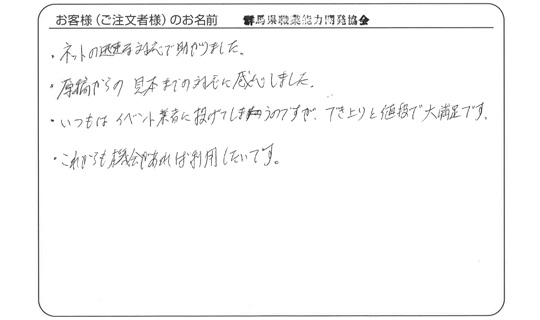 お客様(ご注文者様)のお名前 群馬県職業能力開発協会
・ネットの迅速な対応で助かりました。
・原稿からの見本までの対応に感心しました。
・いつもは イベント業者に投げてしまうのですが、でき上りと値段で大満足です。
・これからも機会があれば利用したいです。